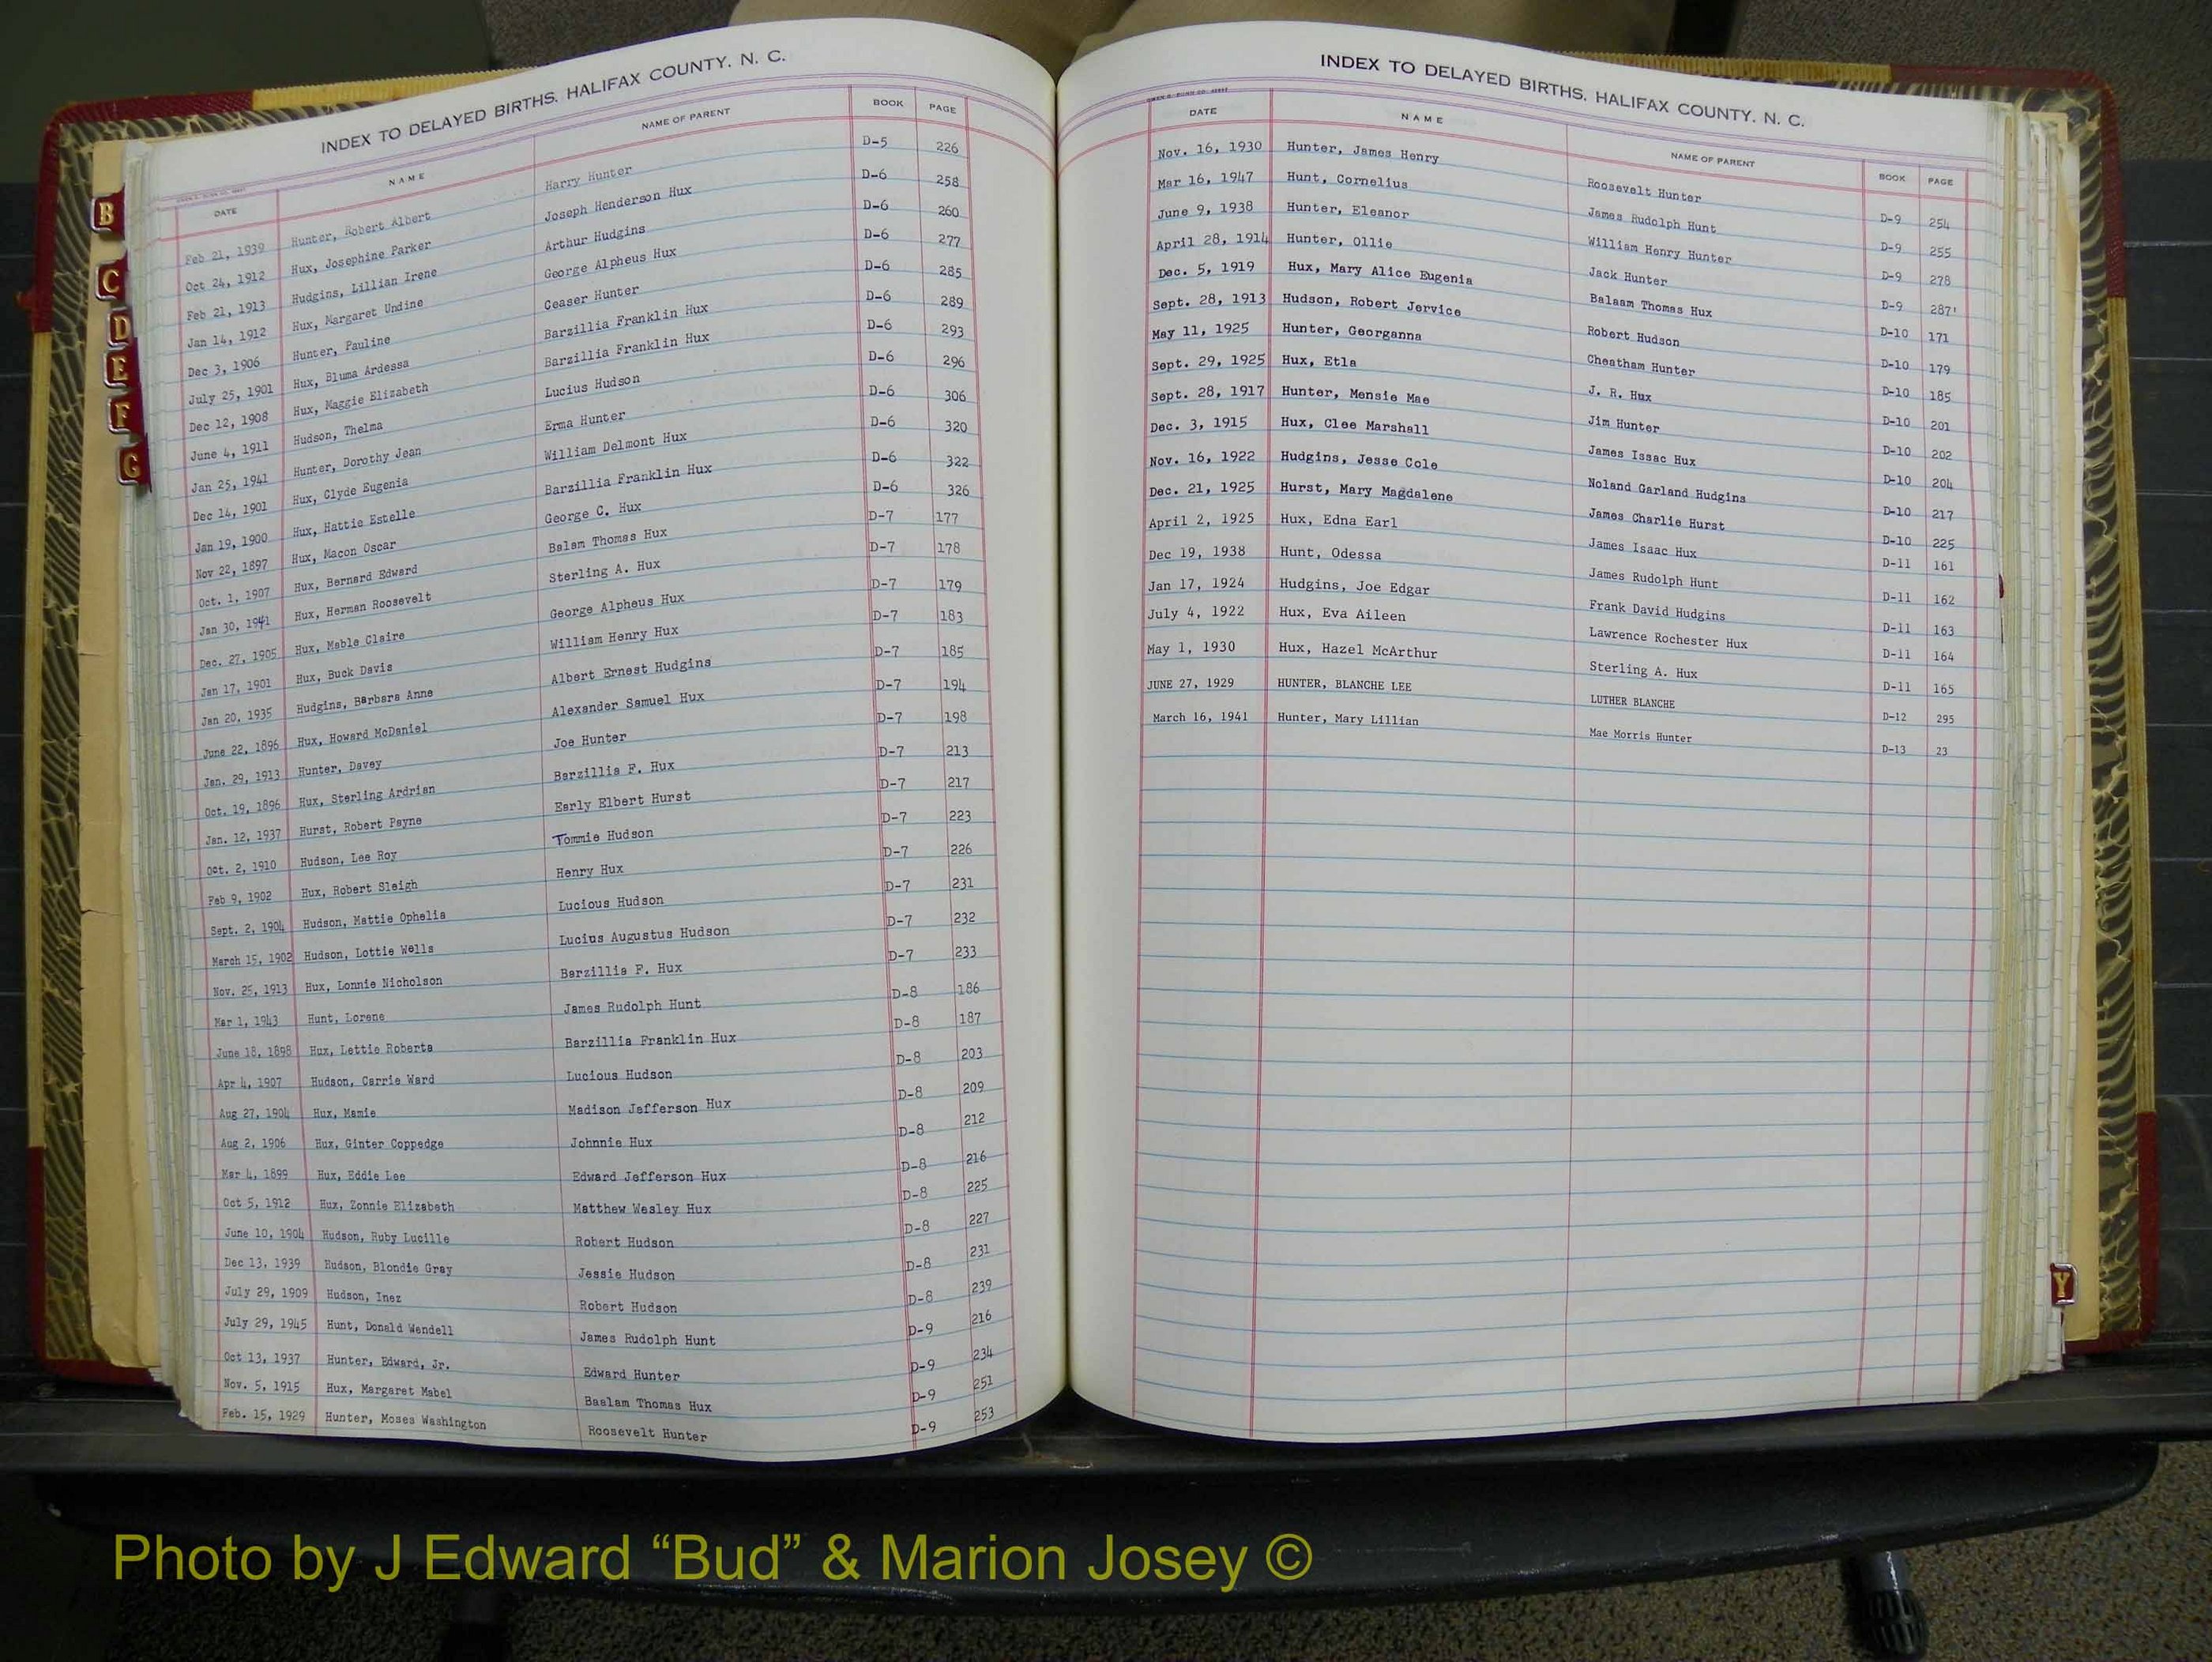 INDEX TO DELAYED BIRTHS, HALIFAX COUNTY, N. C.
DATE NAME NAME OF PARENT BOOK PAGE
Feb 21, 1939 Hunter, Robert Albert Harry Hunter D-5 226
Oct 24, 1912 Hux, Josephine Parker Joseph Henderson Hux D-6 258
Feb 21, 1913 Hudgins, Lillian Irene Arthur Hudgins D-6 260
Jan 14, 1912 Hux, Margaret Undine George Alpheus Hux D-6 277
Dec 3, 1906 Hunter, Pauline Ceaser Hunter D-6 285
July 25, 1901 Hux, Bluma Ardessa Barzillia Franklin Hux D-6 289
Dec 12, 1908 Hux, Maggie Elizabeth Barzillia Franklin Hux D-6 293
June 4, 1911 Hudson, Thelma Lucius Hudson D-6 296
Jan 25, 1941 Hunter, Dorothy Jean Erma Hunter D-6 306
Dec 14, 1901 Hux, Clyde Eugenia William Delmont Hux D-6 320
Jan 19, 1900 Hux, Hattie Estelle Barzillia Franklin Hux D-6 322
Nov 22, 1897 Hux, Macon Oscar George C. Hux D-6 326
Oct. 1, 1907 Hux, Bernard Edward Balam Thomas Hux D-7 177
Jan 30, 1941 Hux, Herman Roosevelt Sterling A. Hux D-7 178
Dec. 27, 1905 Hux, Mable Claire George Alpheus Hux D-7 179
Jan 17, 1901 Hux, Buck Davis William Henry Hux D-7 183
Jan 20, 1935 Hudgins, Barbara Anne Albert Ernest Hudgins D-7 185
June 22, 1896 Hux, Howard McDaniel Alexander Samuel Hux D-7 194
Jan. 29, 1913 Hunter, Davey Joe Hunter D-7 198
Oct. 19, 1896 Hux, Sterling Ardrian Barzillia F. Hux D-7 213
Jan. 12, 1937 Hurst, Robert Payne Early Elbert Hurst D-7 217
Oct. 2, 1910 Hudson, Lee Roy Tommie Hudson D-7 223
Feb 9, 1902 Hux, Robert Sleigh Henry Hux D-7 226
Sept. 2, 1904 Hudson, Mattie Ophelia Lucious Hudson D-7 231
March 15, 1902 Hudson, Lottie Wells Lucius Augustus Hudson D-7 232
Nov. 25, 1913 Hux, Lonnie Nicholson Barzillia F. Hux D-7 233
Mar 1, 1943 Hunt, Lorene James Rudolph Hunt D-8 186
June 18, 1898 Hux, Lettie Roberta Barzillia Franklin Hux D-8 187
Apr 4, 1907 Hudson, Carrie Ward Lucious Hudson D-8 203
Aug 27, 1904 Hux, Mamie Madison Jefferson Hux D-8 209
Aug 2, 1906 Hux, Ginter Coppedge Johnnie Hux D-8 212
Mar 4, 1899 Hux, Eddie Lee Edward Jefferson Hux D-8 216
Oct 5, 1912 Hux, Zonnie Elizabeth Matthew Wesley Hux D-8 225
June 10, 1904 Hudson, Ruby Lucille Robert Hudson D-8 227
Dec 13, 1939 Hudson, Blondie Gray Jessie Hudson D-8 231
July 29, 1909 Hudson, Inez Robert Hudson D-8 239
July 29, 1945 Hunt, Donald Wendell James Rudolph Hunt D-9 216
Oct 13, 1937 Hunter, Edward, Jr. Edward Hunter D-9 234
Nov. 5, 1915 Hux, Margaret Mabel Baalam Thomas Hux D-9 251
Feb. 15, 1929 Hunter, Moses Washington Roosevelt Hunter D-9 253
B
C
D
E
F
G
INDEX TO DELAYED BIRTHS, HALIFAX COUNTY, N. C.
DATE NAME NAME OF PARENT BOOK PAGE
Nov. 16, 1930 Hunter, James Henry Roosevelt Hunter D-9 254
Mar 16, 1947 Hunt, Cornelius James Rudolph Hunt D-9 255
June 9, 1938 Hunter, Eleanor William Henry Hunter D-9 278
April 28, 1914 Hunter, Ollie Jack Hunter D-9 287
Dec. 5, 1919 Hux, Mary Alice Eugenia Balaam Thomas Hux D-10 171
Sept. 28, 1913 Hudson, Robert Jervice Robert Hudson D-10 179
May 11, 1925 Hunter, Georganna Cheatham Hunter D-10 185
Sept. 29, 1925 Hux, Etla J. R. Hux D-10 201
Sept. 28, 1917 Hunter, Mensie Mae Jim Hunter D-10 202
Dec. 3, 1915 Hux, Clee Marshall James Issac Hux D-10 204
Nov. 16, 1922 Hudgins, Jesse Cole Noland Garland Hudgins D-10 217
Dec. 21, 1925 Hurst, Mary Magdalene James Charlie Hurst D-10 225
April 2, 1925 Hux, Edna Earl James Isaac Hux D-11 161
Dec 19, 1938 Hunt, Odessa James Rudolph Hunt D-11 162
Jan 17, 1924 Hudgins, Joe Edgar Frank David Hudgins D-11 163
July 4, 1922 Hux, Eva Aileen Lawrence Rochester Hux D-11 164
May 1, 1930 Hux, Hazel McArthur Sterling A. Hux D-11 165
JUNE 27, 1929 HUNTER, BLANCHE LEE LUTHER BLANCHE D-12 295
March 16, 1941 Hunter, Mary Lillian Mae Morris Hunter D-13 23
Y
Photo by J Edward “Bud” & Marion Josey ©